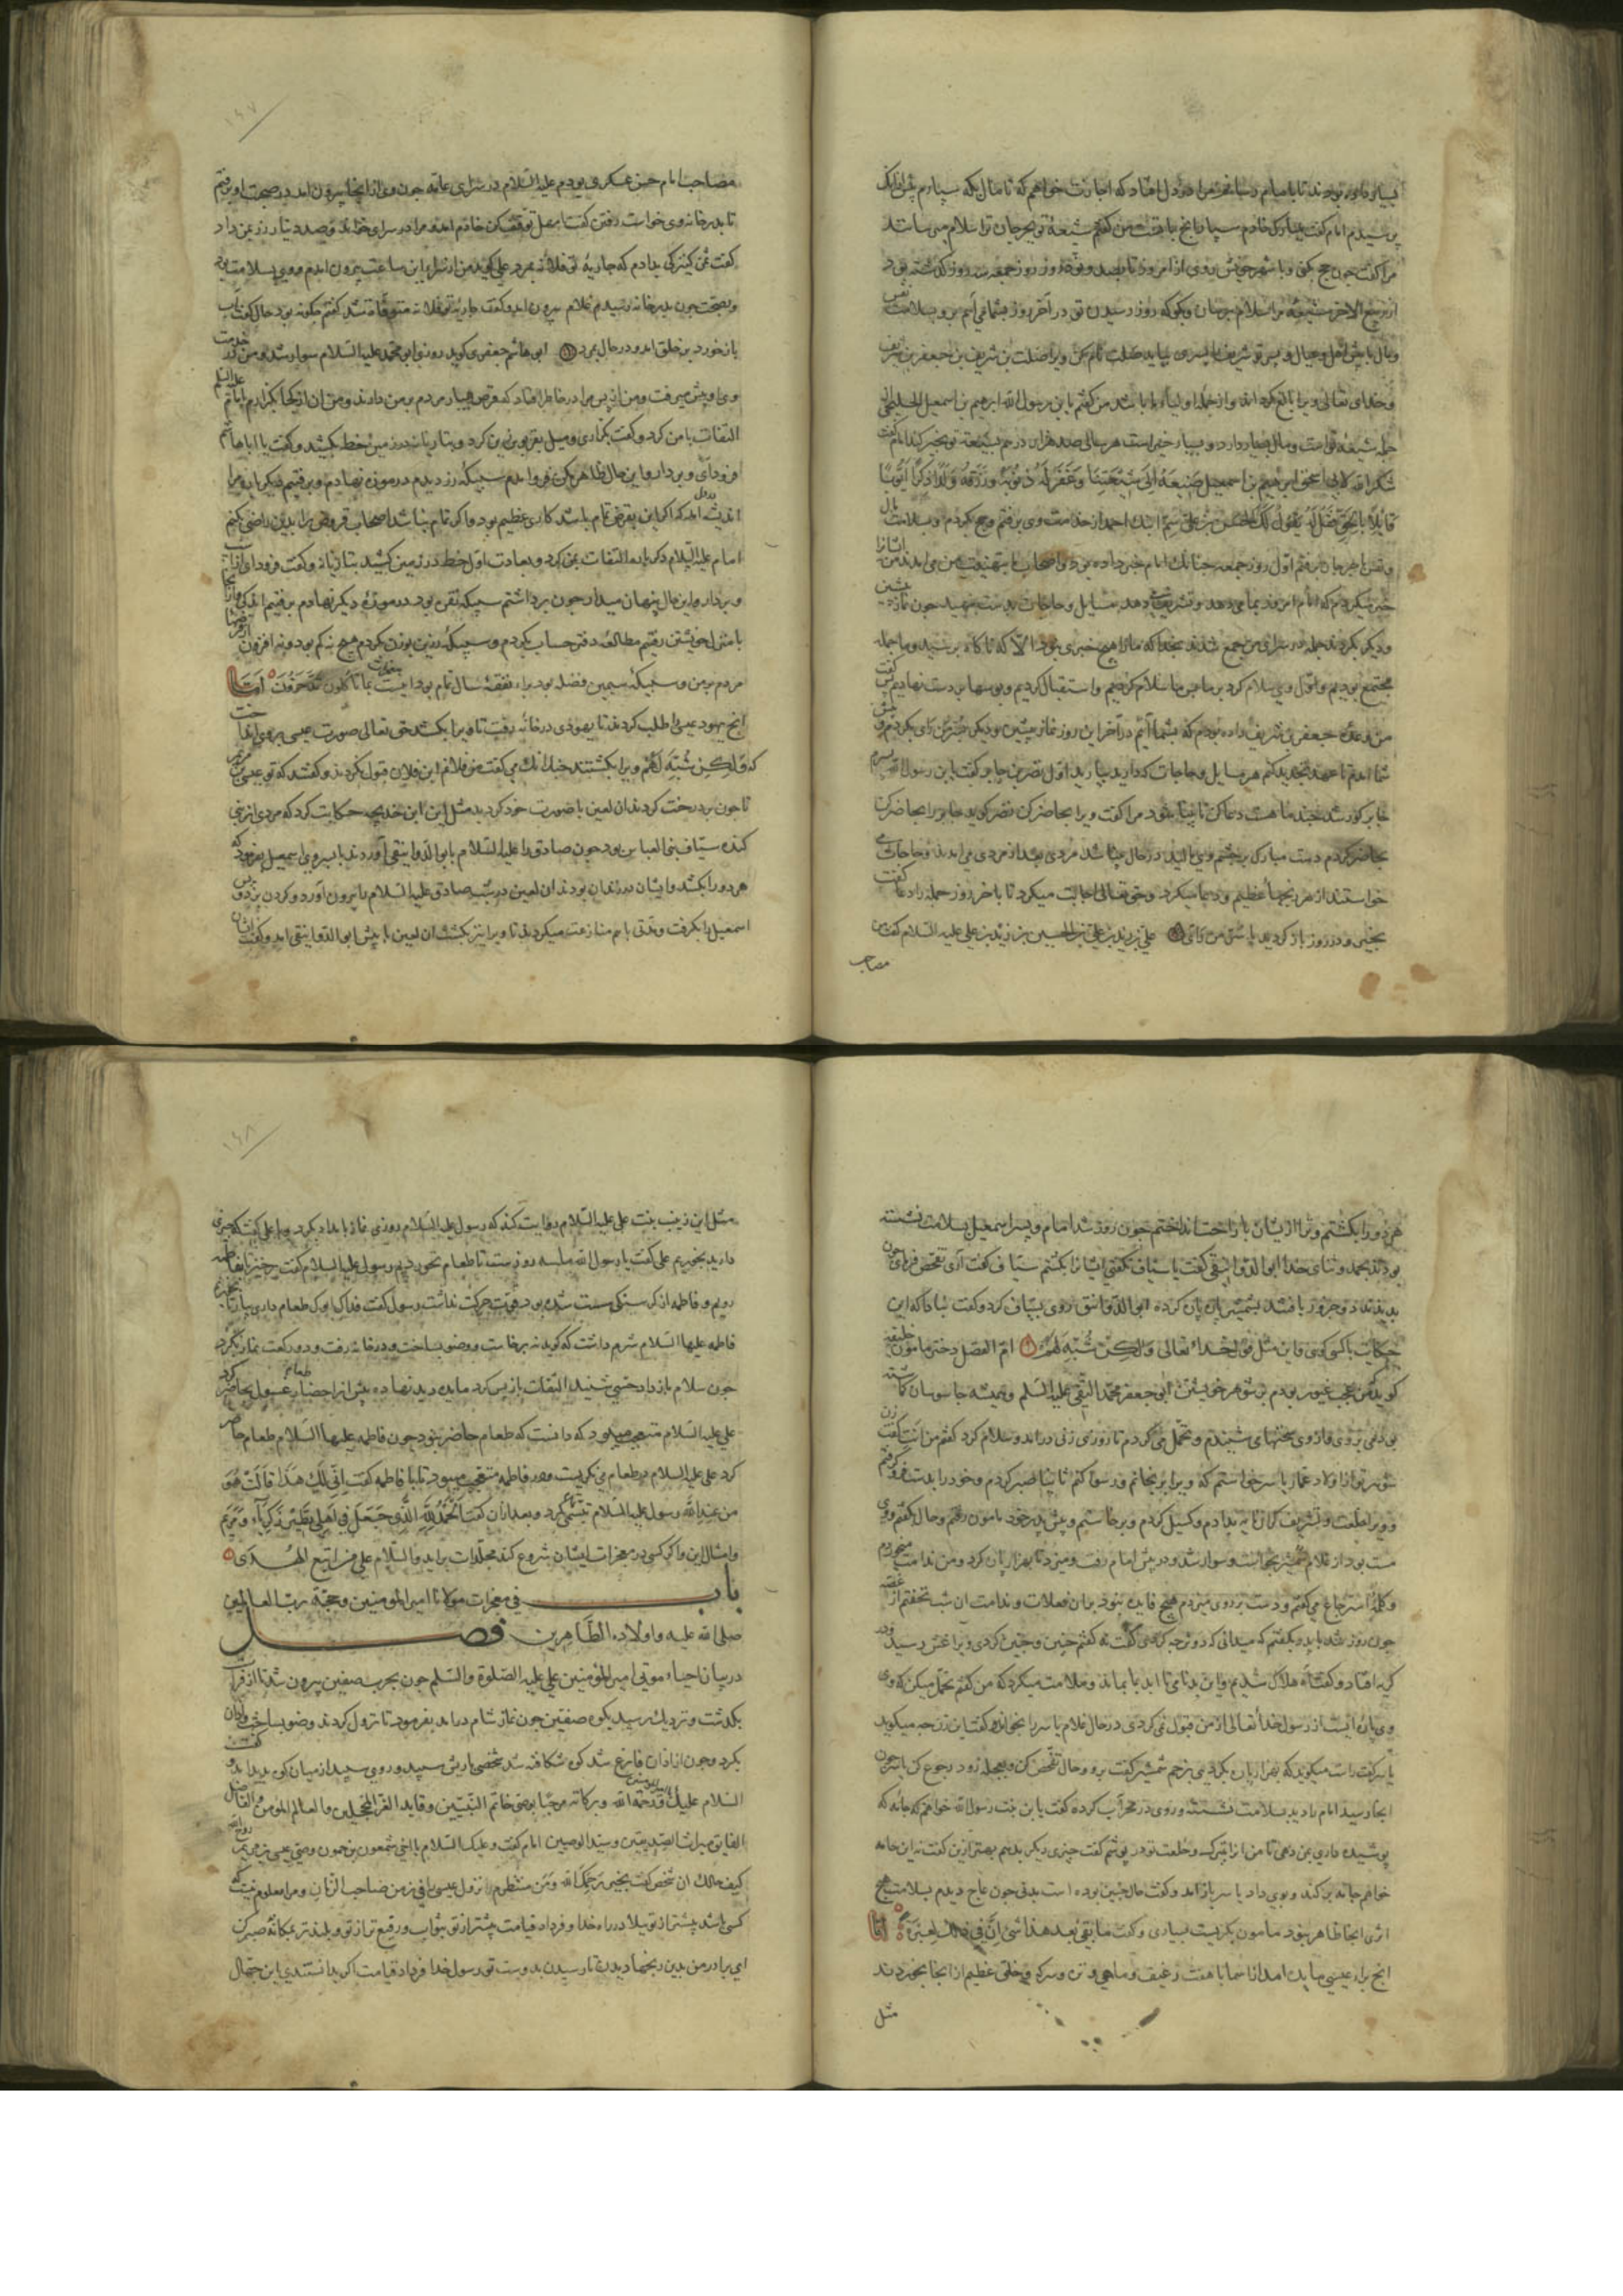 بسیار داده بودند تا بامام رسانم مرا در دل افتاد که اجازت خواهم که تا مال بکه سپارم پیش از آنک
پرسیدم امام گفت بمبارک خادم سپار آنچ با تست من گفتم شیعهٔ تو بجرجان ترا سلام می‌رسانند
مرا گفت چون حج بکنی و با شهر خویش روی از امروز تا صد و نود روز روز جمعه سه روز گذشته بود
از ربیع الآخر شیعه مرا سلام برسان و بگو که روز رسیدن تو در آخر روز بشما می‌آیم برو بسلامت نفس
و مال با پیش اهل و عیال و پسر تو شریف را پسری بیاید صلت نام کن ویرا صلت بن شریف بن جعفر بن شریف
و خدای تعالی ویرا بالغ کرداند و از جملهٔ اولیاء ما باشد من گفتم یا بن رسول الله ابرهیم بن اسمعیل الجلجلی
از جمله شیعهٔ تو است و مال بسیار دارد و بسیار خیر است هر سالی صد هزار درم بشیعهٔ تو بخیر کند امام گفت
شکر الله لابی اسحق ابرهیم بن اسمعیل صنیعه الی شیعتنا و غفر له ذنوبه و رزقه ولدا ذکرا سویا
قایلا بالحق فقل له یقول لک الحسن بن علی سم ابنک احمد از خدمت وی برفتم و حج بکردم و بسلامت مال
و نفس با جرجان برفتم اول روز جمعه چنانک امام خبر داده بود و اصحاب ما بتهنیت من می‌آمدند من ایشانرا
خبر بکردم که امام امروز بما می‌رسد و تشریف می‌دهد مسایل و حاجات بدست بنهید چون نماز پیشین
و دیگر بکردند جمله در سرای من جمع شدند بخدا که ما را هیچ خبری نبود الا که ناگاه برسید و ما جمله
مجتمع بودیم و اول وی سلام کرد بر ما پس ما سلام کردیم و استقبال کردیم و بوسها بر دست نهادیم پس گفت
من وعده جعفر بن شریف داده بودم که بشما آیم در آخر این روز نماز پیشین و دیگر بسر من رای بکردم و پیش
شما آمدم تا عهد تجدید کنم هر مسایل و حاجات که دارید بیارید اول نضر بن جابر گفت یا بن رسول الله پسرم
جابر کور شد چند ماهست دعا کن تا بینا شود مرا گفت ویرا حاضر کن نضر گوید جابر را حاضر کرد
بحاضر کردم دست مبارک بر چشم وی مالید در حال بینا شد مردی بعد از مردی می‌آمدند و حاجات
خواستند از مرد رنجها عظیم و دعا میکرد و حق تعالی اجابت میکرد تا بآخر روز جمله را دعا گفت
بخیر و در روز باز کردید با سر من رای علی بن زید بن علی بن الحسین بن زید بن علی علیه السلام گفت من
مصاحب
۱۴۷
مصاحب امام حسن عسکری بودم علیه السلام در سرای عامه چون وی از آنجا بیرون آمد در صحبت او برفتم
تا بدر خانه وی خواست رفتن گفتا مهل توقف کن خادم آمد و مرا در سرای خواند و صد دینار زر بمن داد
گفت بثمن کنیزکی بدادم که جاریهٔ تو فلانه بمرد علی گوید من از سرای این ساعت بیرون آمدم و وی بسلامت بود
و بصحت چون بدر خانه رسیدم غلام بیرون آمد و گفت جاریهٔ تو فلانه متوفاة شد گفتم چگونه بود حال گفت آب
باز خورد بر خلق آمد و در حال بمرد ابی هاشم جعفری گوید روزی ابو محمد علیه السلام سوار شد و من در خدمت
وی او پیش میرفت و من از پس مرا در خاطر افتاد که قرض بسیار مردم بر من دارند و من آن از کجا بگزارم امام علیه السلم
التفات با من کرد و گفت بگزاری و میل بقربوس زین کرد و بتازیانه در زمین خط بکشید و گفت یا ابا هاشم
فرود آی و بردار و این حال ظاهر مکن فرو آمدم سبیکهٔ زر دیدم در موزه نهادم و برفتیم دیگر باره مرا
اندیشه آمد که اگر این بقرض تمام باشد کاری عظیم بود و اگر تمام نباشد اصحاب قروض را بدین راضی کنم
امام علیه السلام دگر باره التفات بمن کرد و بعادت اول خط در زمین کشید بتازیانه و گفت فرود آی
و بردار و این حال پنهان میدار چون برداشتم سبیکهٔ نقره بود در موزهٔ دیگر نهادم برفتیم اندکی و از آنجا
با منزل خویشتن رفتم مطالعهٔ دفتر حساب بکردم و سبیکهٔ زرین بوزن بکردم هیچ نه کم بود و نه افزون از قرضها
مردم بر من و سبیکهٔ سیمین فضله بود برای نفقهٔ سال تمام بود انبئت بما تأکلون و ما تدخرون اما
آنچ یهود عیسی را طلب کردند تا یهودی در خانه رفت تا ویرا بکشد حق تعالی صورت عیسی بر وی انداخت
که و لکن شبه لهم ویرا بکشتند چندانک می‌گفت من فلانم ابن فلان قبول نکردند و گفتند که تو عیسی مریم
تا چون بر درخت کردند آن لعین با صورت خود کردید مثل این ابن خدیجه حکایت کرد که مردی از بنی
کنده سیاف بنی العباس بود چون صادق را علیه السلام با ابو الدوانیقی آوردند با پسر وی اسمعیل بفرمود که
هر دو را بکشد و ایشان در زندان بودند آن لعین در شب صادق علیه السلام را بیرون آورد و گردن بزد پس
اسمعیل را بگرفت و مدتی با هم منازعت میکردند تا ویرا نیز بکشت آن لعین با پیش ابو الدوانیقی آمد و گفت ایشان
هر دو را بکشتم و ترا از ایشان با راحت انداختم چون روز شد امام و پسر اسمعیل بسلامت نشسته
بودند بحمد و ثنای خدا ابو الدوانیقی گفت با سیاف نگفتی ایشان را بکشتم سیاف گفت آری تفحص فرمای چون
بدیدند دو جزور یافتند بشمشیر پاره پاره کرده ابو الدوانیق روی بسیاف کرد و گفت نباد که این
حکایت با کسی گوی و این مثل قول خداء تعالی و لکن شبه لهم ام الفضل دختر مامون خلیفه
گوید من عجب غیور بودم بر شوهر خویشتن ابی جعفر محمد التقی علیه السلم و همیشه جاسوسان گماشته
بودمی بر وی و از وی سخنها می‌شنیدم و تحمل می‌کردم تا روزی زنی در آمد و سلام کرد گفتم من انت گفت زن
شوهر توم از اولاد عمار یاسر خواستم که ویرا برنجانم و رسوا کنم ثانیا صبر کردم و خود را بدست فرو گرفتم
و ویرا خلعت و تشریف گرانمایه بدادم و گسیل کردم و برخاستم و پیش پدر خود مامون رفتم و حال گفتم و وی
مست بود از غلام شمشیر بخواست و سوار شد و در پیش امام رفت و میزد تا بهزار پاره کرد و من ندامت میخوردم
و کلمهٔ استرجاع می‌گفتم و دست بر روی میزدم هیچ فایده نبود بر آن فعلات و ندامت آن شب نخفتم از غصه
چون روز شد با پدر بگفتم که میدانی که دوش چه کردی گفت نه گفتم چنین و چنین کردی ویرا غش رسید و در
گریه افتاد و گفت آه هلاک شدیم و این بدنامی تا ابد با ما بماند و ملامت میکرد که من گفتم تحمل میکن که وی
وی پارهٔ ایست از رسول خدا تعالی از من قبول نمی‌کردی در حال غلام یاسر را بخواند و گفت این زن چه میگوید
یاسر گفت راست میگوید که بهزار پاره بکردی بزخم شمشیر گفت برو و حال تفحص کن و بعجله زود رجوع کن یاسر چون
آنجا رسید امام را دید بسلامت نشسته و روی در محراب کرده گفت یا بن بنت رسول الله خواهم که جامه که
پوشیده داری بمن دهی تا من از برای تبرک و خلعت تو در پوشم گفت چیزی دیگر بدهم بهتر ازین گفت نه این جامه
خواهم جامه بر کند و بوی داد یاسر باز آمد و گفت حال چنین بوده است بدنی چون عاج دیدم بسلامت هیچ
اثری آنجا ظاهر نبود مامون بگریست بسیاری و گفت ما بقی بعد هذا شئ ان فی ذلک لعبرة اما
آنچ برای عیسی مایده آمد از آسمان با هفت رغیف و ماهی و تره و سرکه و خلقی عظیم از آنجا بخوردند
مثل
۱۴۸
مثل این زینب بنت علی علیه السلام روایت کند که رسول علیه السلام روزی نماز بامداد بکرد و با علی گفت که چیزی
دارید بخوریم علی گفت یا رسول الله ما سه روزست تا طعام نخوردیم رسول علیه السلام گفت برخیز تا بفاطمه
رویم و فاطمه از گرسنگی سست شده بود قوت حرکت نداشت رسول گفت فداک ابوک طعام داری بیار تا بخوریم
فاطمه علیها السلام شرم داشت که گوید نه برخاست و وضو بساخت و در خانه رفت و دو رکعت نماز بکرد
چون سلام باز داد حسی شنید التفات باز پس کرد مایده دید نهاده پیش از احضار رسول طعام حاضر کرد
علی علیه السلام متعجب میبود که دانست که طعام حاضر نبود چون فاطمه علیها السلام طعام حاضر
کرد علی علیه السلام در طعام می‌نگریست و در فاطمه متعجب میبود تا با فاطمه گفت انی لک هذا قالت هو
من عند الله رسول علیه السلام تبسمی کرد و بعد از آن گفت الحمد لله الذی جعل فی اهلی نظیر زکریا و مریم
و امثال این و اگر کسی در معجزات ایشان شروع کند مجلدات برآید و السلام علی من اتبع الهدی
باب فی معجزات مولانا امیر المومنین و حجة رب العالمین
صلی الله علیه و اولاده الطاهرین فصل
در بیان احیاء موتی امیر المؤمنین علی علیه الصلوة و السلم چون بحرب صفین بیرون شد تا از فرات
بگذشت و نزدیک رسید بکوه صفین چون نماز شام در آمد بفرمود تا نزول کردند وضو بساخت و اذان
بکرد و چون از اذان فارغ شد کوه شکافته شد شخصی با ریش سپید و روی سپید از میان کوه پدید آمد و گفت
السلام علیک یا امیر المؤمنین و رحمة الله و برکاته مرحبا بوصی خاتم النبیین و قاید الغر المحجلین و العالم المؤمن و الفاضل
الفایق میراث الصدیقین و سید الوصیین امام گفت و علیک السلام یا اخی شمعون بن حمون وصی عیسی بن مریم روح الله
کیف حالک آن شخص گفت بخیر یرحمک الله و من منتظرم نزول عیسی را فی زمن صاحب الزمان و مرا معلوم نیست که
کسی اشد بیشتر از تو بلا در راه خدا و فردا و قیامت بیشتر از تو بثواب و رفیع تر از تو و بلندتر بمکانة صبر کن
ای برادر من بدین رنجها و بدن تا رسیدن بدوست تو رسول خدا فردا و قیامت اگر بدانستندی این جمال